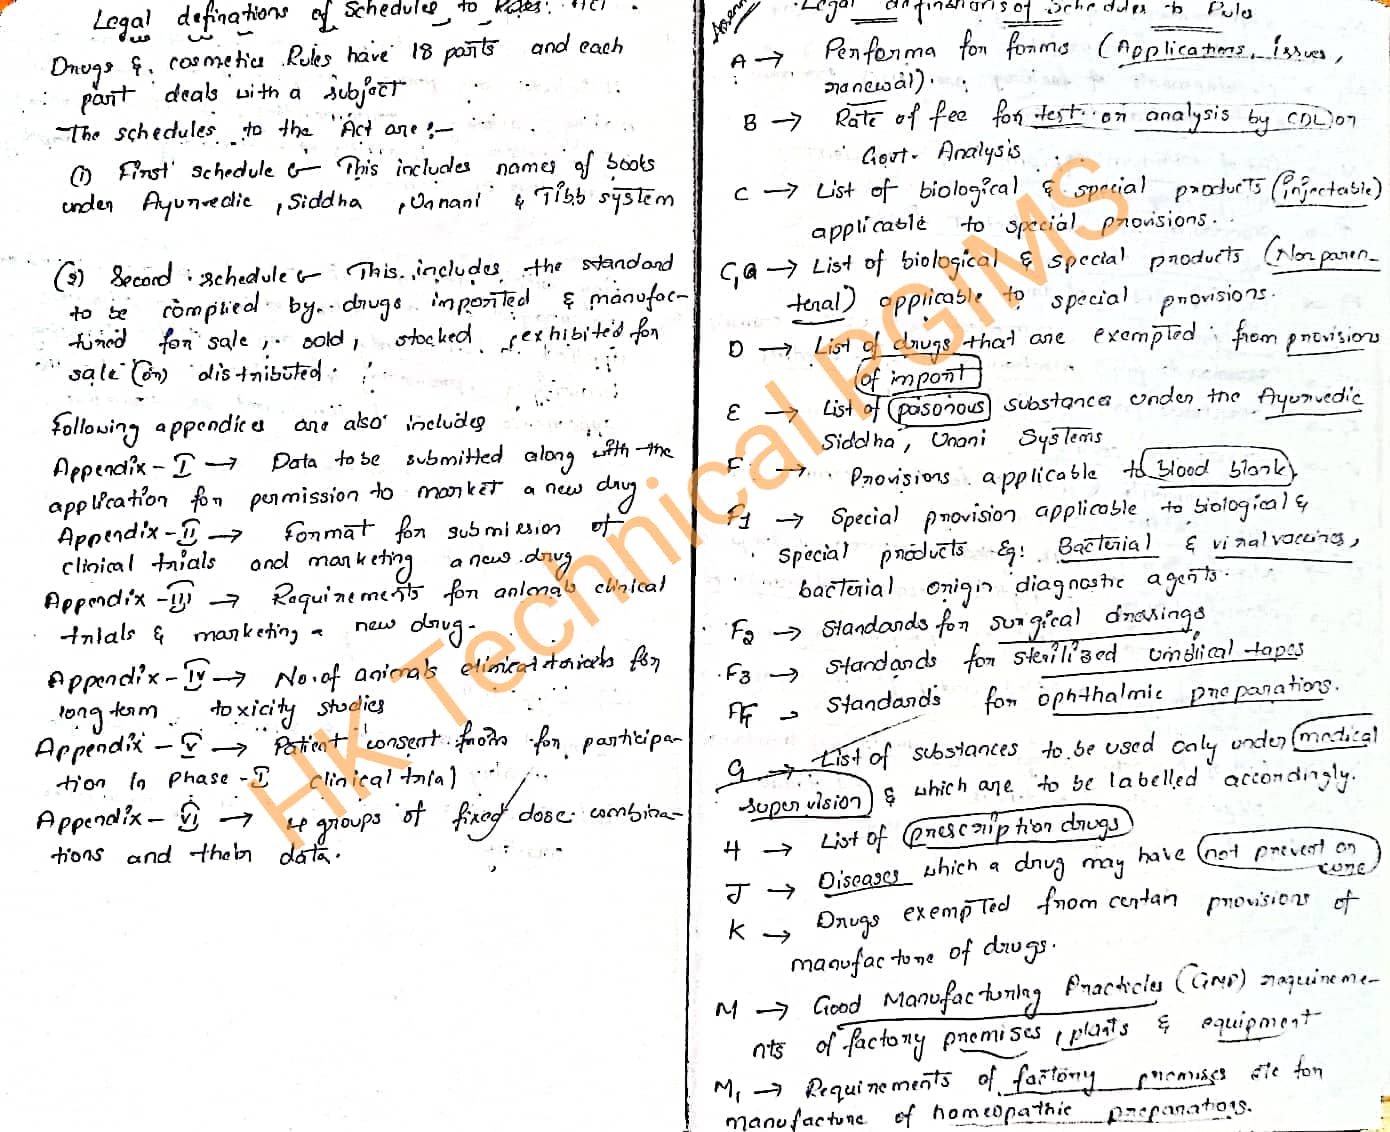 Legal definations of Schedules to Rules. Act.
Drugs & cosmetics Rules have 18 parts and each
part deals with a subject
The schedules to the Act are:-
(1) First schedule :- This includes names of books
under Ayurvedic, Siddha, Unnani & Tibb system
(2) Second schedule :- This includes the standard
to be complied by drugs imported & manufac-
tured for sale, sold, stocked, exhibited for
sale (or) distributed.
Following appendices are also includes
Appendix - I → Data to be submitted along with the
application for permission to market a new drug
Appendix - II → Format for submission of
clinical trials and marketing a new drug
Appendix - III → Requirements for animals clinical
trials & marketing a new drug.
Appendix - IV → No. of animals clinical trials for
long term toxicity studies
Appendix - V → Patient consent from for participa-
tion in phase - I clinical trial
Appendix - VI → 4 groups of fixed dose combina-
tions and their data.
Legal definations of Schedules to Rules
A → Performa for forms (Applications, issues,
renewal).
B → Rate of fee for test or analysis by (CDL) or
Govt. Analysis
C → List of biological & special products (injectable)
applicable to special provisions.
C1a → List of biological & special products (Nonparen-
teral) applicable to special provisions.
D → List of drugs that are exempted from provisions
of import
E → List of poisonous substance under the Ayurvedic
Siddha, Unani Systems
F → Provisions applicable to blood blank
F1 → Special provision applicable to biological &
special products Eg: Bacterial & viral vaccines,
bacterial origin diagnostic agents.
F2 → Standards for surgical dressings
F3 → Standards for sterilized umblical tapes
FF → Standards for ophthalmic preparations.
G → List of substances to be used only under medical
supervision & which are to be labelled accordingly.
H → List of prescription drugs
J → Diseases which a drug may have not prevent or
cure
K → Drugs exempted from certan provisions of
manufacture of drugs.
M → Good Manufacturing Practicles (GMP) requireme-
nts of factory premises, plants & equipment
M1 → Requirements of factory premises etc for
manufacture of homeopathic preparations.
HK Technical PGIMS